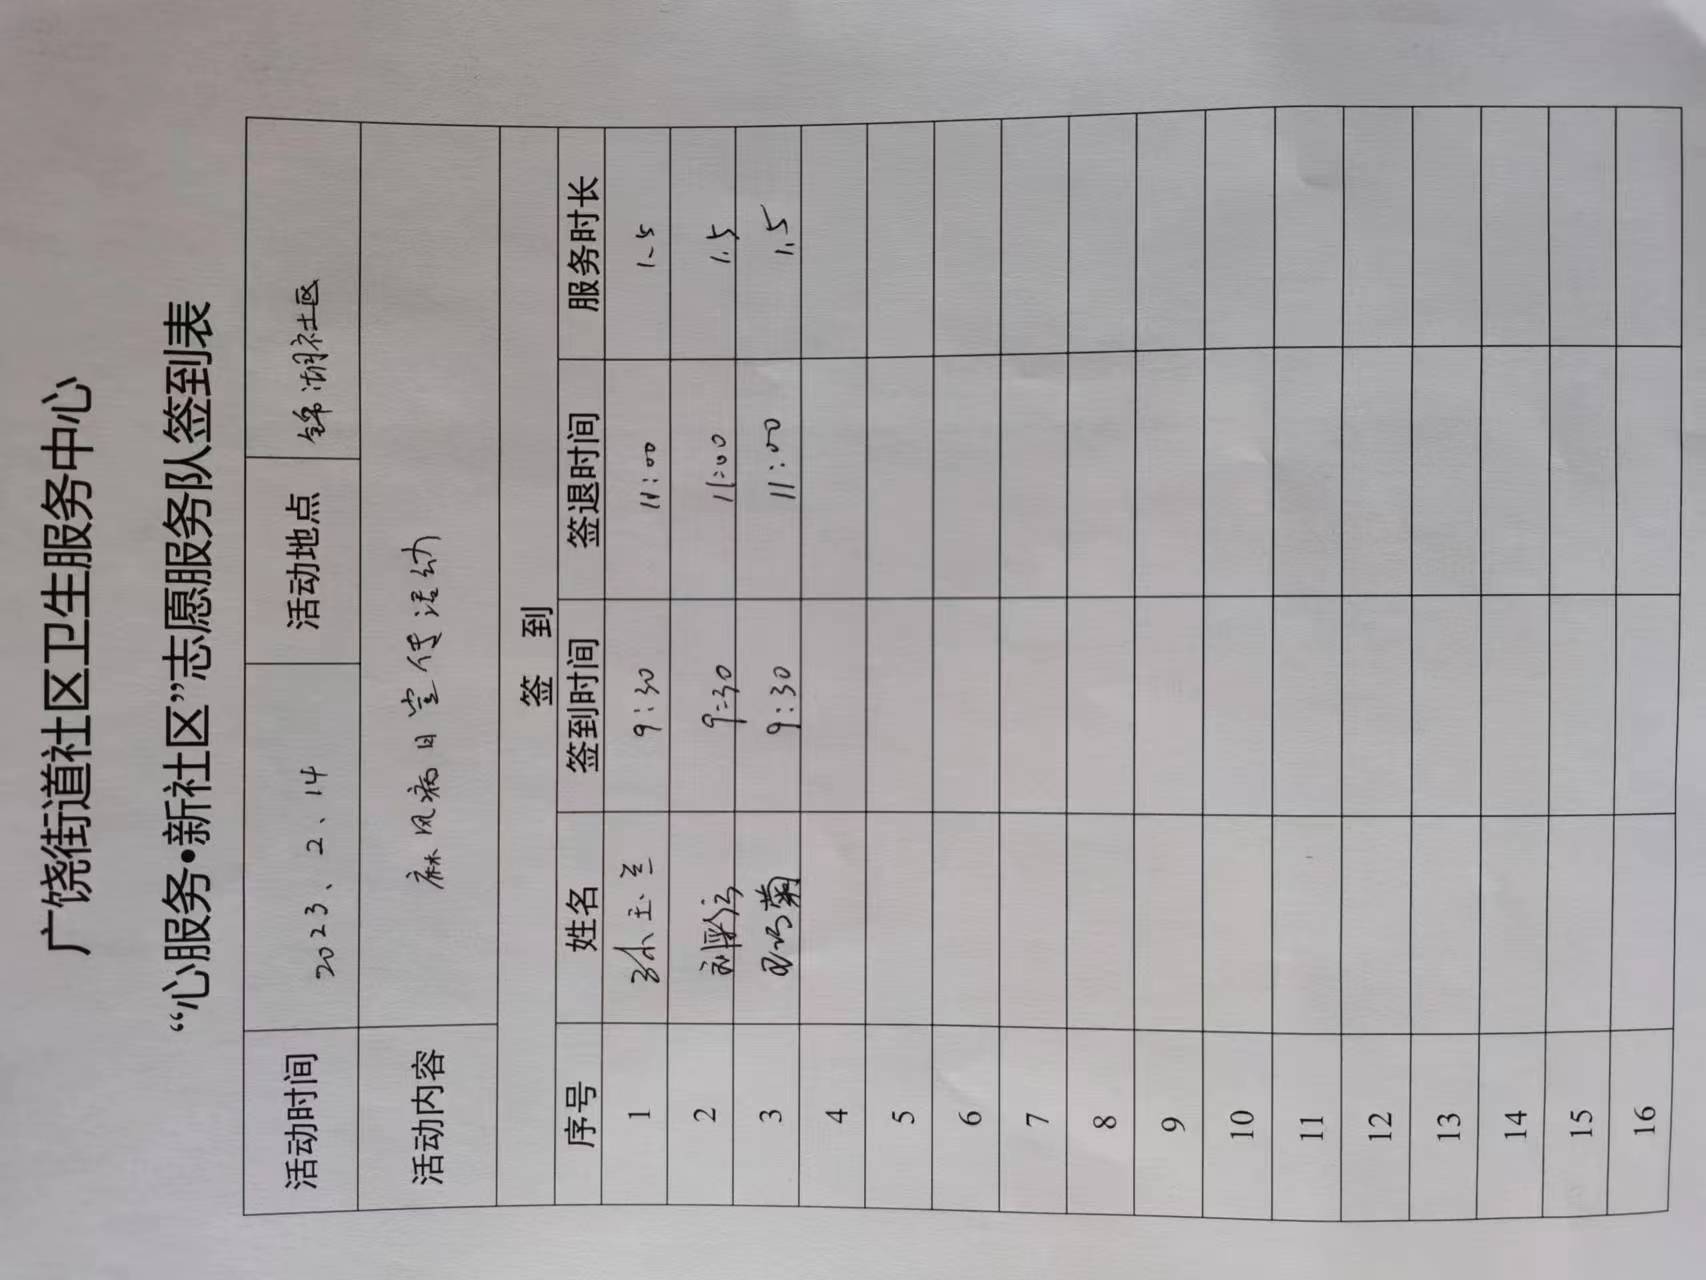 广饶街道社区卫生服务中心
“心服务·新社区”志愿服务队签到表
活动时间 2023、2、14 活动地点 锦湖社区
活动内容 麻风病日宣传活动
签 到
序号 姓名 签到时间 签退时间 服务时长
1 孙玉兰 9:30 11:00 1.5
2 9:30 11:00 1.5
3 9:30 11:00 1.5
4
5
6
7
8
9
10
11
12
13
14
15
16